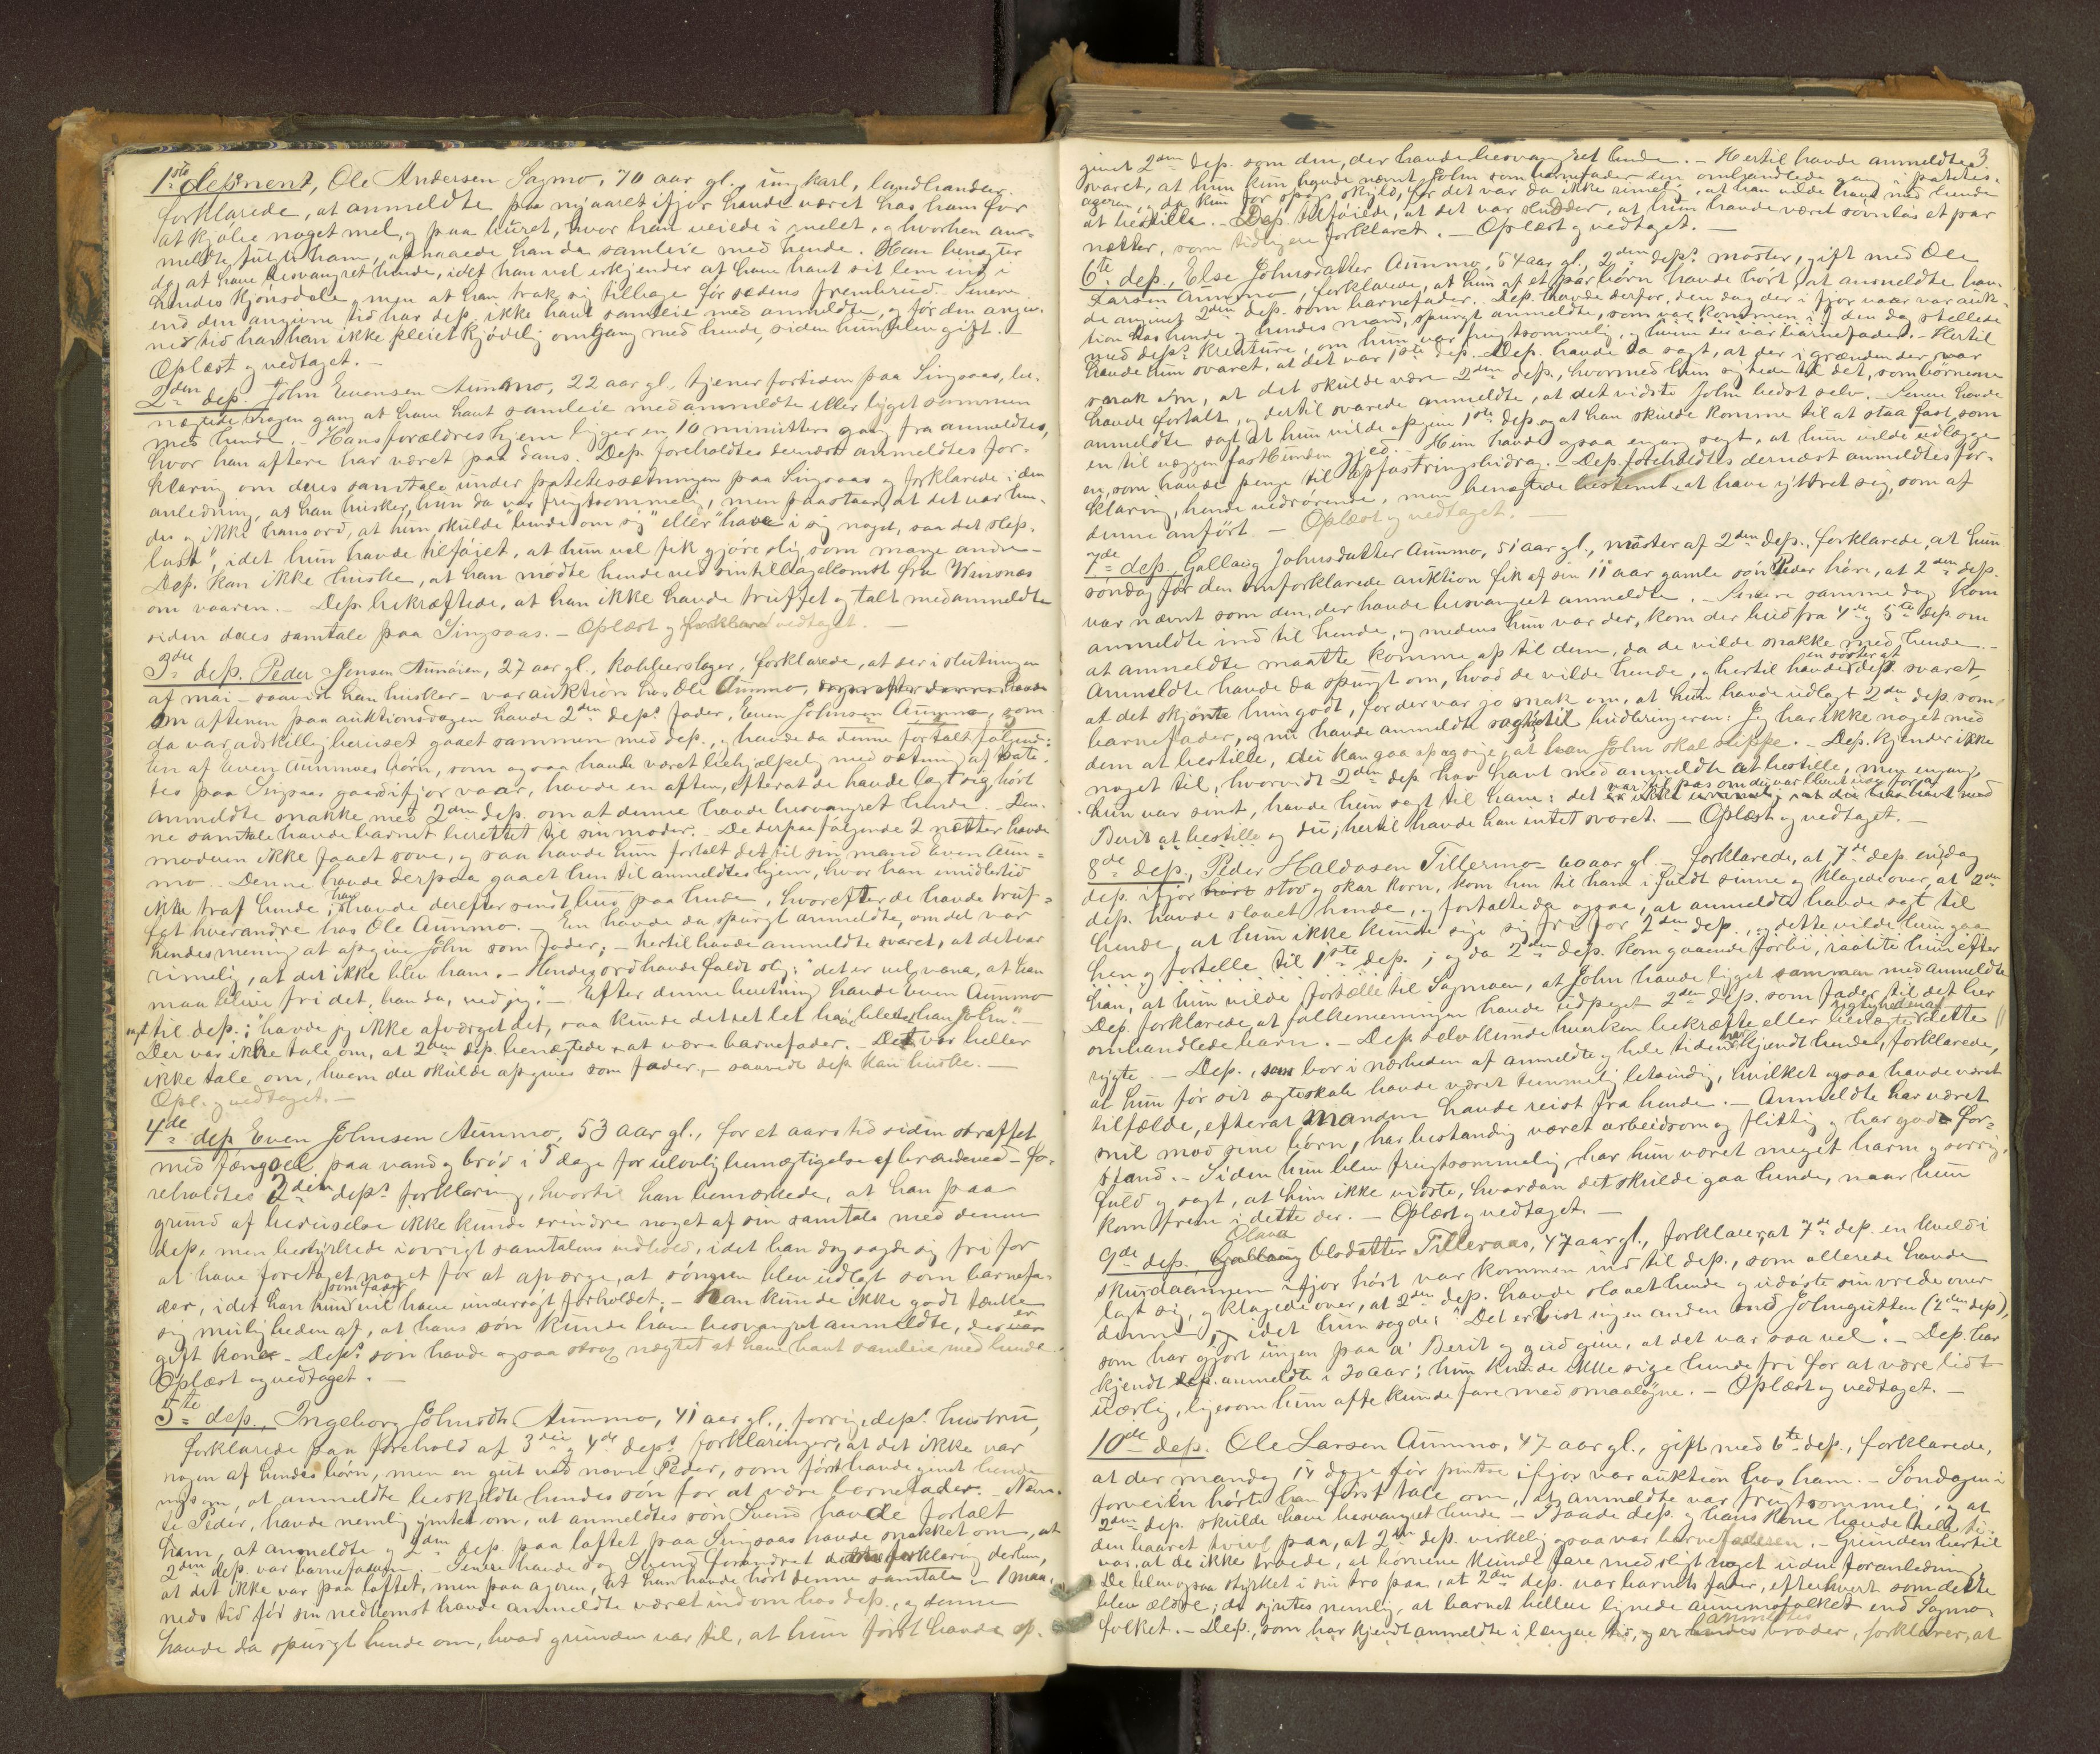 1ste deponent, Ole Andersen Sagmo, 70 aar gl., ungkarl, landhandler.
forklarede, at anmeldte paa nyaaret ifjor havde været hos ham for
at kjøbe noget mel, og paa buret, hvor han veiede i melet, og hvorhen an-
meldte fulgte ham, opnaaede han da samleie med hende. Han benegter
dog at have besvangret hende, idet han vel erkjender at have havt sit lem ind i
hendes kjønsdele, men at han trak sig tilbage før sædens frembrud. Senere
end den angivne tid har dep. ikke havt samleie med anmeldte, og før den angiv-
ne tid har han ikke pleiet kjødelig omgang med hende, siden hun blev gift.
Oplæst og vedtaget. —
2den dep. John Evensen Aunmo, 22 aar gl., tjener fortiden paa Singsaas, be-
nægtede nogen gang at have havt samleie med anmeldte eller ligget sammen
med hende. — Hans forældres hjem ligger en 10 minutters gang fra anmeldtes,
hvor han aftere har været paa dans. Dep. foreholdtes dernæst anmeldtes for-
klaring om deres samtale under potetessætningen paa Singsaas og forklarede i den
anledning, at han husker, hun da var frugtsommelig, men paastaar, at det var hen-
des og ikke hans ord, at hun skulde "binde om sig" eller "have i sig noget, saa det slap
løst", idet hun havde tilføiet, at hun vel fik gjøre slig som mange andre —
Dep. kan ikke huske, at han mødte hende ved sin tilbagekomst fra Winsnes
om vaaren. — Dep. bekræftede, at han ikke havde truffet og talt med anmeldte
siden deres samtale paa Singsaas. — Oplæst og vedtaget. —
3die dep. Peder Jensen Aunøien, 27 aar gl., kobberslager, forklarede, at der i slutningen
af mai — saavidt han husker — var auktion hos Ole Aunmo,
Om aftenen paa auktionsdagen havde 2den deps. fader, Even Johnsen Aunmo, som
da var adskillig beruset gaaet sammen med dep., og havde da denne fortalt følgende:
En af Even Aunmoes børn, som ogsaa havde været behjælpelig med sætning af pote-
tes paa Singsaas gaard ifjor vaar, havde en aften, efterat de havde lagt sig, hørt
anmeldte snakke med 2den dep. om at denne havde besvangret hende. Den-
ne samtale havde barnet berettet til sin moder. — De derpaa følgende 2 nætter havde
moderen ikke faaet sove, og saa havde hun fortalt det til sin mand Even Aun-
mo. — Denne havde derpaa gaaet hen til anmeldtes hjem, hvor han imidlertid
ikke traf hende; han havde derefter sendt bud paa hende, hvorefter de havde truf-
fet hverandre hos Ole Aunmo. — En havde da spurgt anmeldte, om det var
hendes mening at opgive John som fader; — hertil havde anmeldte svaret, at det var
rimelig, at det ikke blev ham. — Hendes ord havde faldt slig: "det er vel vona, at han
maa blive fri det, han da, ved jeg". — Efter denne beretning havde Even Aunmo
sagt til dep.: "havde jeg ikke afværget det, saa kunde det set let ha blet han John". —
Der var ikke tale om, at 2den dep. benegtede at være barnefader. — Det var heller
ikke tale om, hvem der skulde opgives som fader, — saavidt dep. kan huske. —
Opl. og vedtaget. —
4de dep. Even Johnsen Aunmo, 53 aar gl., for et aars tid siden straffet
med fængsel paa vand og brød i 5 dage for ulovlig bemægtigelse af brændeved — fo-
reholdtes 2den deps. forklaring, hvortil han bemærkede, at han paa
grund af beruselse ikke kunde erindre noget af sin samtale med denne
dep., men bestyrkede iøvrigt samtalens indhold, idet han dog sagde sig fri for
at have foretaget noget for at afværge, at sønnen blev udlagt som barnefa-
der, idet han som fader kun vil have undersøgt forholdet. — Han kunde ikke godt tænke
sig muligheden af, at hans søn kunde have besvangret anmeldte, der er
gift kone. — Deps. søn havde ogsaa strax nægtet at have havt samleie med hende.
Oplæst og vedtaget. —
5te dep., Ingeborg Johnsdtr. Aunmo, 41 aar gl., forrige deps. hustru,
forklarede paa forehold af 3die og 4de deps. forklaringer, at det ikke var
nogen af hendes børn, men en gut ved navn Peder, som først havde givet hende
nys om, at anmeldte beskyldte hendes søn for at være barnefader. — Nævn-
te Peder, havde nemlig ymtet om, at anmeldtes søn Svend havde fortalt
ham, at anmeldte og 2den dep. paa loftet paa Singsaas havde snakket om, at
2den dep. var barnefaderen. — Senere havde dog Svend forandret forklaring derhen,
at det ikke var paa loftet, men paa ageren, at han havde hørt denne samtale. — 1 maa-
neds tid før sin nedkomst havde anmeldte været indom hos dep., og denne
havde da spurgt hende om, hvad grunden var til, at hun først havde op-
3.
givet 2den dep. som den, der havde besvangret hende. — Hertil havde anmeldte
svaret, at hun kun havde nævnt John som barnefader den omhandlede gang i potetes-
ageren, og da kun for spøgs skyld, for det var da ikke rimelig, at han vilde havt med hende
at bestille. — Dep. tilføiede, at det var sludder, at hun havde været søvnløs et par
nætter, som tidligere forklaret. — Oplæst og vedtaget. —
6te dep., Else Johnsdatter Aunmo, 54 aar gl., 2den deps. moster, gift med Ole
Larsen Aunmo, forklarede, at hun af et par børn havde hørt, at anmeldte hav-
de angivet 2den dep. som barnefader. Dep. havde derfor, den dag der i fjor vaar var auk-
tion hos hende og hendes mand, spurgt anmeldte, som var kommen i den dag stellede
med deps. kreature, om hun var frugtsommelig, og hvem der var barnefader. — Hertil
havde hun svaret, at det var 1ste dep. Dep. havde da sagt, at der i grænden der, var
snak om, at det skulde være 2den dep., hvormed hun sigtede til det, som børnene
havde fortalt, og dertil svarede anmeldte, at det vidste John bedst selv. Senere havde
anmeldte sagt at hun vilde opgive 1ste dep. og at han skulde komme til at staa fast som
en til væggen fastbunden gjed. — Hun havde ogsaa engang sagt, at hun vilde udlægge
en, som havde penge til opfostringsbidrag. — Dep. foreholdtes dernæst anmeldtes for-
klaring, hende vedrørende, men benægtede bestemt at have yttret sig, som af
denne anført. — Oplæst og vedtaget. —
7de dep., Gollaug Johnsdatter Aunmo, 51 aar gl., moster af 2den dep., forklarede, at hun
søndag før den omforklarede auktion fik af sin 11 aar gamle søn Peder høre, at 2den dep.
var nævnt som den, der havde besvangret anmeldte. — Senere samme dag kom
anmeldte ind til hende, og medens hun var der, kom der bud fra 4de og 5te dep. om
at anmeldte maatte komme op til dem, da de vilde snakke med hende. —
Anmeldte havde da spurgt om, hvad de vilde hende, og hertil havde en søster af dep. svaret,
at det skjønte hun godt, for der var jo snak om, at hun havde udlagt 2den dep. som
barnefader, og nu havde anmeldte sagt til budbringeren: Jeg har ikke noget med
dem at bestille, du kan gaa op og sige, at han John skal slippe. — Dep. kjender ikke
noget til, hvorvidt 2den dep. har havt med anmeldte at bestille, men engang,
hun var sint, havde hun sagt til ham: det
Berit at bestille og du; hertil havde han intet svaret. — Oplæst og vedtaget. —
8de dep., Peder Haldosen Tillermo 60 aar gl. — forklarede, at 7de dep. en dag
dep. ifjor stod og skar korn, kom hen til ham i fuldt sinne og klagede over, at 2den
dep. havde slaaet hende, og fortalte da ogsaa, at anmeldte havde sagt til
hende, at hun ikke kunde sige sig fri for 2den dep., og dette vilde hun gaa
hen og fortelle til 1ste dep.; og da 2den dep. kom gaaende forbi, raabte hun efter
han, at hun vilde fortælle til Sagmoen, at John havde ligget sammen med anmeldte
Dep. forklarede, at folkemeningen havde udpeget 2den dep. som fader til det her
omhandlede barn. — Dep. selv kunde hverken bekræfte eller benægte rigtigheden af dette
rygte. — Dep., som bor i nærheden af anmeldte og hele tiden har kjendt hende, forklarede,
at hun før sit ægteskab havde været temmelig letsindig, hvilket ogsaa havde været
tilfælde, efterat manden havde reist fra hende. — Anmeldte har været
snil mod sine børn, har bestandig været arbeidsom og flittig og har god for-
stand. — Siden hun blev frugtsommelig har hun været meget harm og sorrig-
fuld og sagt, at hun ikke vidste, hvordan det skulde gaa hende, naar hun
kom frem i dette der. — Oplæst og vedtaget. —
9de dep., Olava Olsdatter Tilleraas, 47 aar gl., forklarer, at 7de dep. en kveld i
skurdaannen ifjor høst var kommen ind til dep., som allerede havde
lagt sig, og klagede over, at 2den dep. havde slaaet hende og udøste sin vrede over
denne, idet hun sagde: "Det er vist ingen anden end Johngutten (2den dep.),
som har gjort ungen paa a' Berit og gud give, at det var saa vel". — Dep. har
kjendt anmeldte i 20 aar; hun kunde ikke sige hende fri for at være lidt
uærlig, ligesom hun ofte kunde fare med smaaløgne. — Oplæst og vedtaget. —
10de dep. Ole Larsen Aunmo, 47 aar gl., gift med 6te dep., forklarede,
at der mandag 14 dage før pintse ifjor var auktion hos ham. — Søndagen i
forveien hørte han først tale om, at anmeldte var frugtsommelig, og at
2den dep. skulde have besvangret hende. — Baade dep. og hans kone havde hele ti-
den baaret tvivl paa, at 2den dep. virkelig ogsaa var barnefaderen. — Grunden hertil
var, at de ikke troede, at børnene kunde fare med sligt noget uden foranledning.
De blev ogsaa styrket i sin tro paa, at 2den dep. var barnets fader, efterhvert som dette
blev ældre; de syntes nemlig, at barnet heller lignede aunmofolket end Sagmo-
folket. — Dep., som har kjendt anmeldte i længere tid, og er anmeldtes broder, forklarer, at